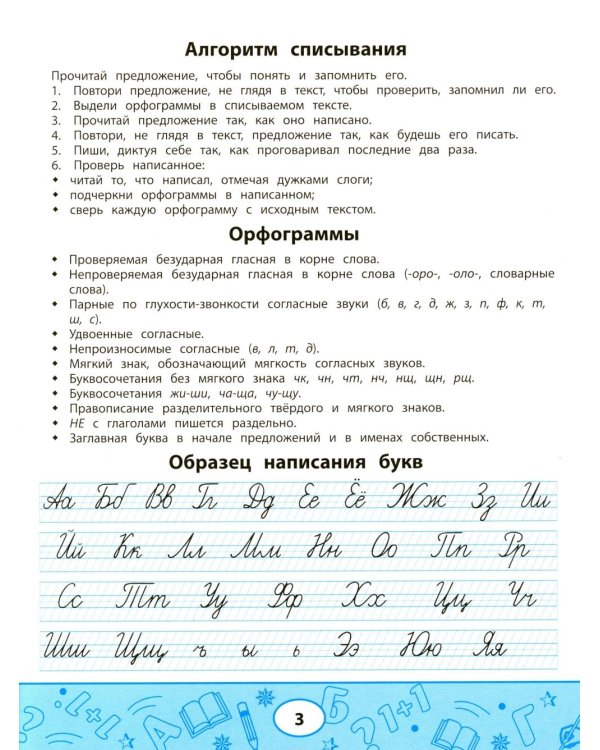 Алгоритм списывания
Прочитай предложение, чтобы понять и запомнить его.
1. Повтори предложение, не глядя в текст, чтобы проверить, запомнил ли его.
2. Выдели орфограммы в списываемом тексте.
3. Прочитай предложение так, как оно написано.
4. Повтори, не глядя в текст, предложение так, как будешь его писать.
5. Пиши, диктуя себе так, как проговаривал последние два раза.
6. Проверь написанное:
◆ читай то, что написал, отмечая дужками слоги;
◆ подчеркни орфограммы в написанном;
◆ сверь каждую орфограмму с исходным текстом.
Орфограммы
◆ Проверяемая безударная гласная в корне слова.
◆ Непроверяемая безударная гласная в корне слова (-оро-, -оло-, словарные
слова).
◆ Парные по глухости-звонкости согласные звуки (б, в, г, д, ж, з, п, ф, к, т,
ш, с).
◆ Удвоенные согласные.
◆ Непроизносимые согласные (в, л, т, д).
◆ Мягкий знак, обозначающий мягкость согласных звуков.
◆ Буквосочетания без мягкого знака чк, чн, чт, нч, нщ, щн, рщ.
◆ Буквосочетания жи-ши, ча-ща, чу-щу.
◆ Правописание разделительного твёрдого и мягкого знаков.
◆ НЕ с глаголами пишется раздельно.
◆ Заглавная буква в начале предложений и в именах собственных.
Образец написания букв
Аа Бб Вв Гг Дд Ее Ёё Жж Зз Ии
Йй Кк Лл Мм Нн Оо Пп Рр
Сс Тт Уу Фф Хх Цц Чч
Шш Щщ ъ ы ь Ээ Юю Яя
3